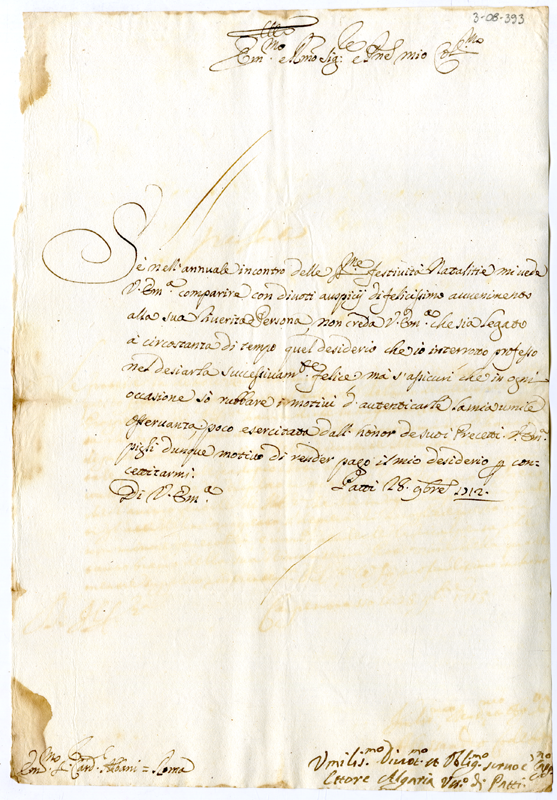 3-08-393
Em.mo e Rmo Sig:re e Pnẽ mio Col.mo
Se nell'annuale incontro delle S.me festività Natalitie mi veda
V. Em.a comparire con divoti auspicij di felicissimo avvenimento
alla sua riverita Persona, non creda V. Em.a che sia legato
à circostanza di tempo quel desiderio che io interrotto professo
nel desiarla successivam.te felice mà s'assicuri che in ogni
occasione sò rubbare i motivi d'autenticarle la mia umile
osservanza, poco esercitata dall'honor de suoi Precetti. V. Em.a
pigli dunque motivo di render pago il mio desiderio con
Di V. Em.a Patti 28. 9bre 1712.
Em.mo S.r Card. Albani = Roma
Vmilis.mo Divot.mo et Oblig.mo servo e
Ettore Algaria V. di Patti